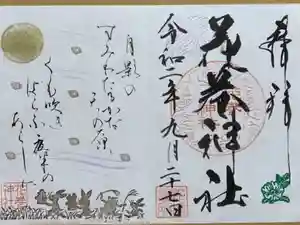 奉拝
神社
令和二年九月二十七日
月影の
すみわたるかな
天の原
くも吹き
はらふ夜半の
あらしに